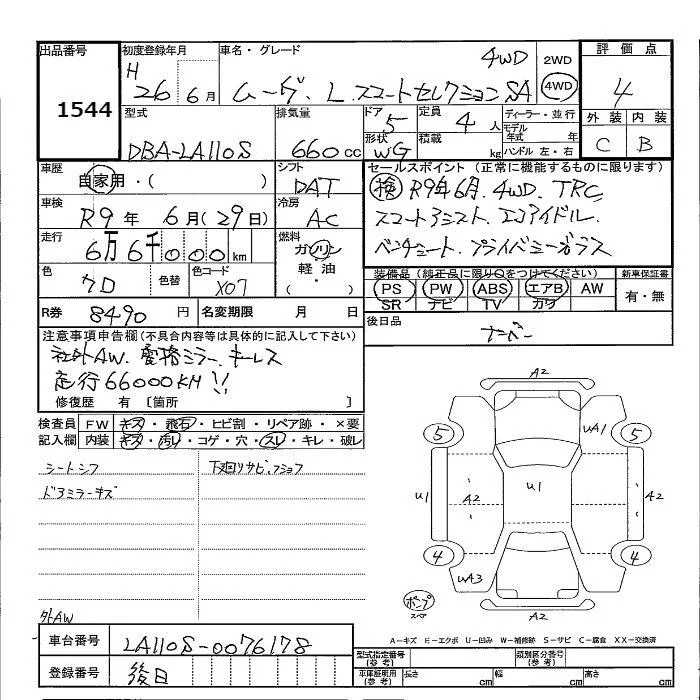 出品番号 1544
初度登録年月 H 26年 6月
車名・グレード ムーヴ. L.スマートセレクション SA
4WD 2WD 4WD
評価点 4
外装 内装
C B
型式 DBA-LA110S
排気量 660cc
ドア 5
形状 WG
定員 4人
積載 kg
ディーラー・並行
モデル年式 年
ハンドル 左・右
車歴 自家用・( )
シフト DAT
車検 R9年 6月(29日)
冷房 AC
走行 6万6千000km
燃料 ガソリン
軽油
・( )
色 クロ
色替
色コード X07
R券 8490円
名変期限 月 日
セールスポイント(正常に機能するものに限ります)
R9年6月. 4WD. TRC
スマートアシスト. エコアイドル.
ベンチシート. プライバシーガラス
装備品(純正品に限り〇をつけてください)
新車保証書
PS PW ABS エアB AW
SR ナビ TV カワ
有・無
後日品 ナンバー
注意事項申告欄(不具合内容等は具体的に記入して下さい)
社外AW. 電格ミラー. キーレス
走行66000KM!!
修復歴 有 〔箇所 〕
検査員記入欄
FW キズ・飛石・ヒビ割・リペア跡・×要
内装 キズ・汚レ・コゲ・穴・スレ・キレ・破レ
シートシワ
下廻りサビ.
ドアミラーキズ
外AW
A2
5 UA1 5
U1 A2 U1 A2
4 UA3 4
A2
ポンプ
スペア
A-キズ E-エクボ U-凹み W-補修跡 S-サビ C-腐食 XX-交換済
車台番号 LA110S-0076178
登録番号 後日
型式指定番号(参考)
類別区分番号(参考)
車庫証明用(参考) 長さ cm 幅 cm 高さ cm